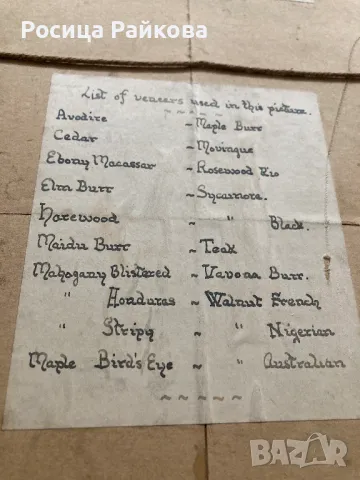 Росица Райкова
List of veneers used in this picture.
~ ~ ~ ~ ~
Avodire ~ Maple Burr
Cedar ~ Movingue
Ebony Macassar ~ Rosewood Rio
Elm Burr ~ Sycamore.
Harewood ~ " Black.
Maidu Burr ~ Teak
Mahogany Blistered ~ Vavona Burr.
" Honduras ~ Walnut French
" Stripy ~ " Nigerian
Maple Bird's Eye ~ " Australian
~ ~ ~ ~ ~
BAZAR
bg